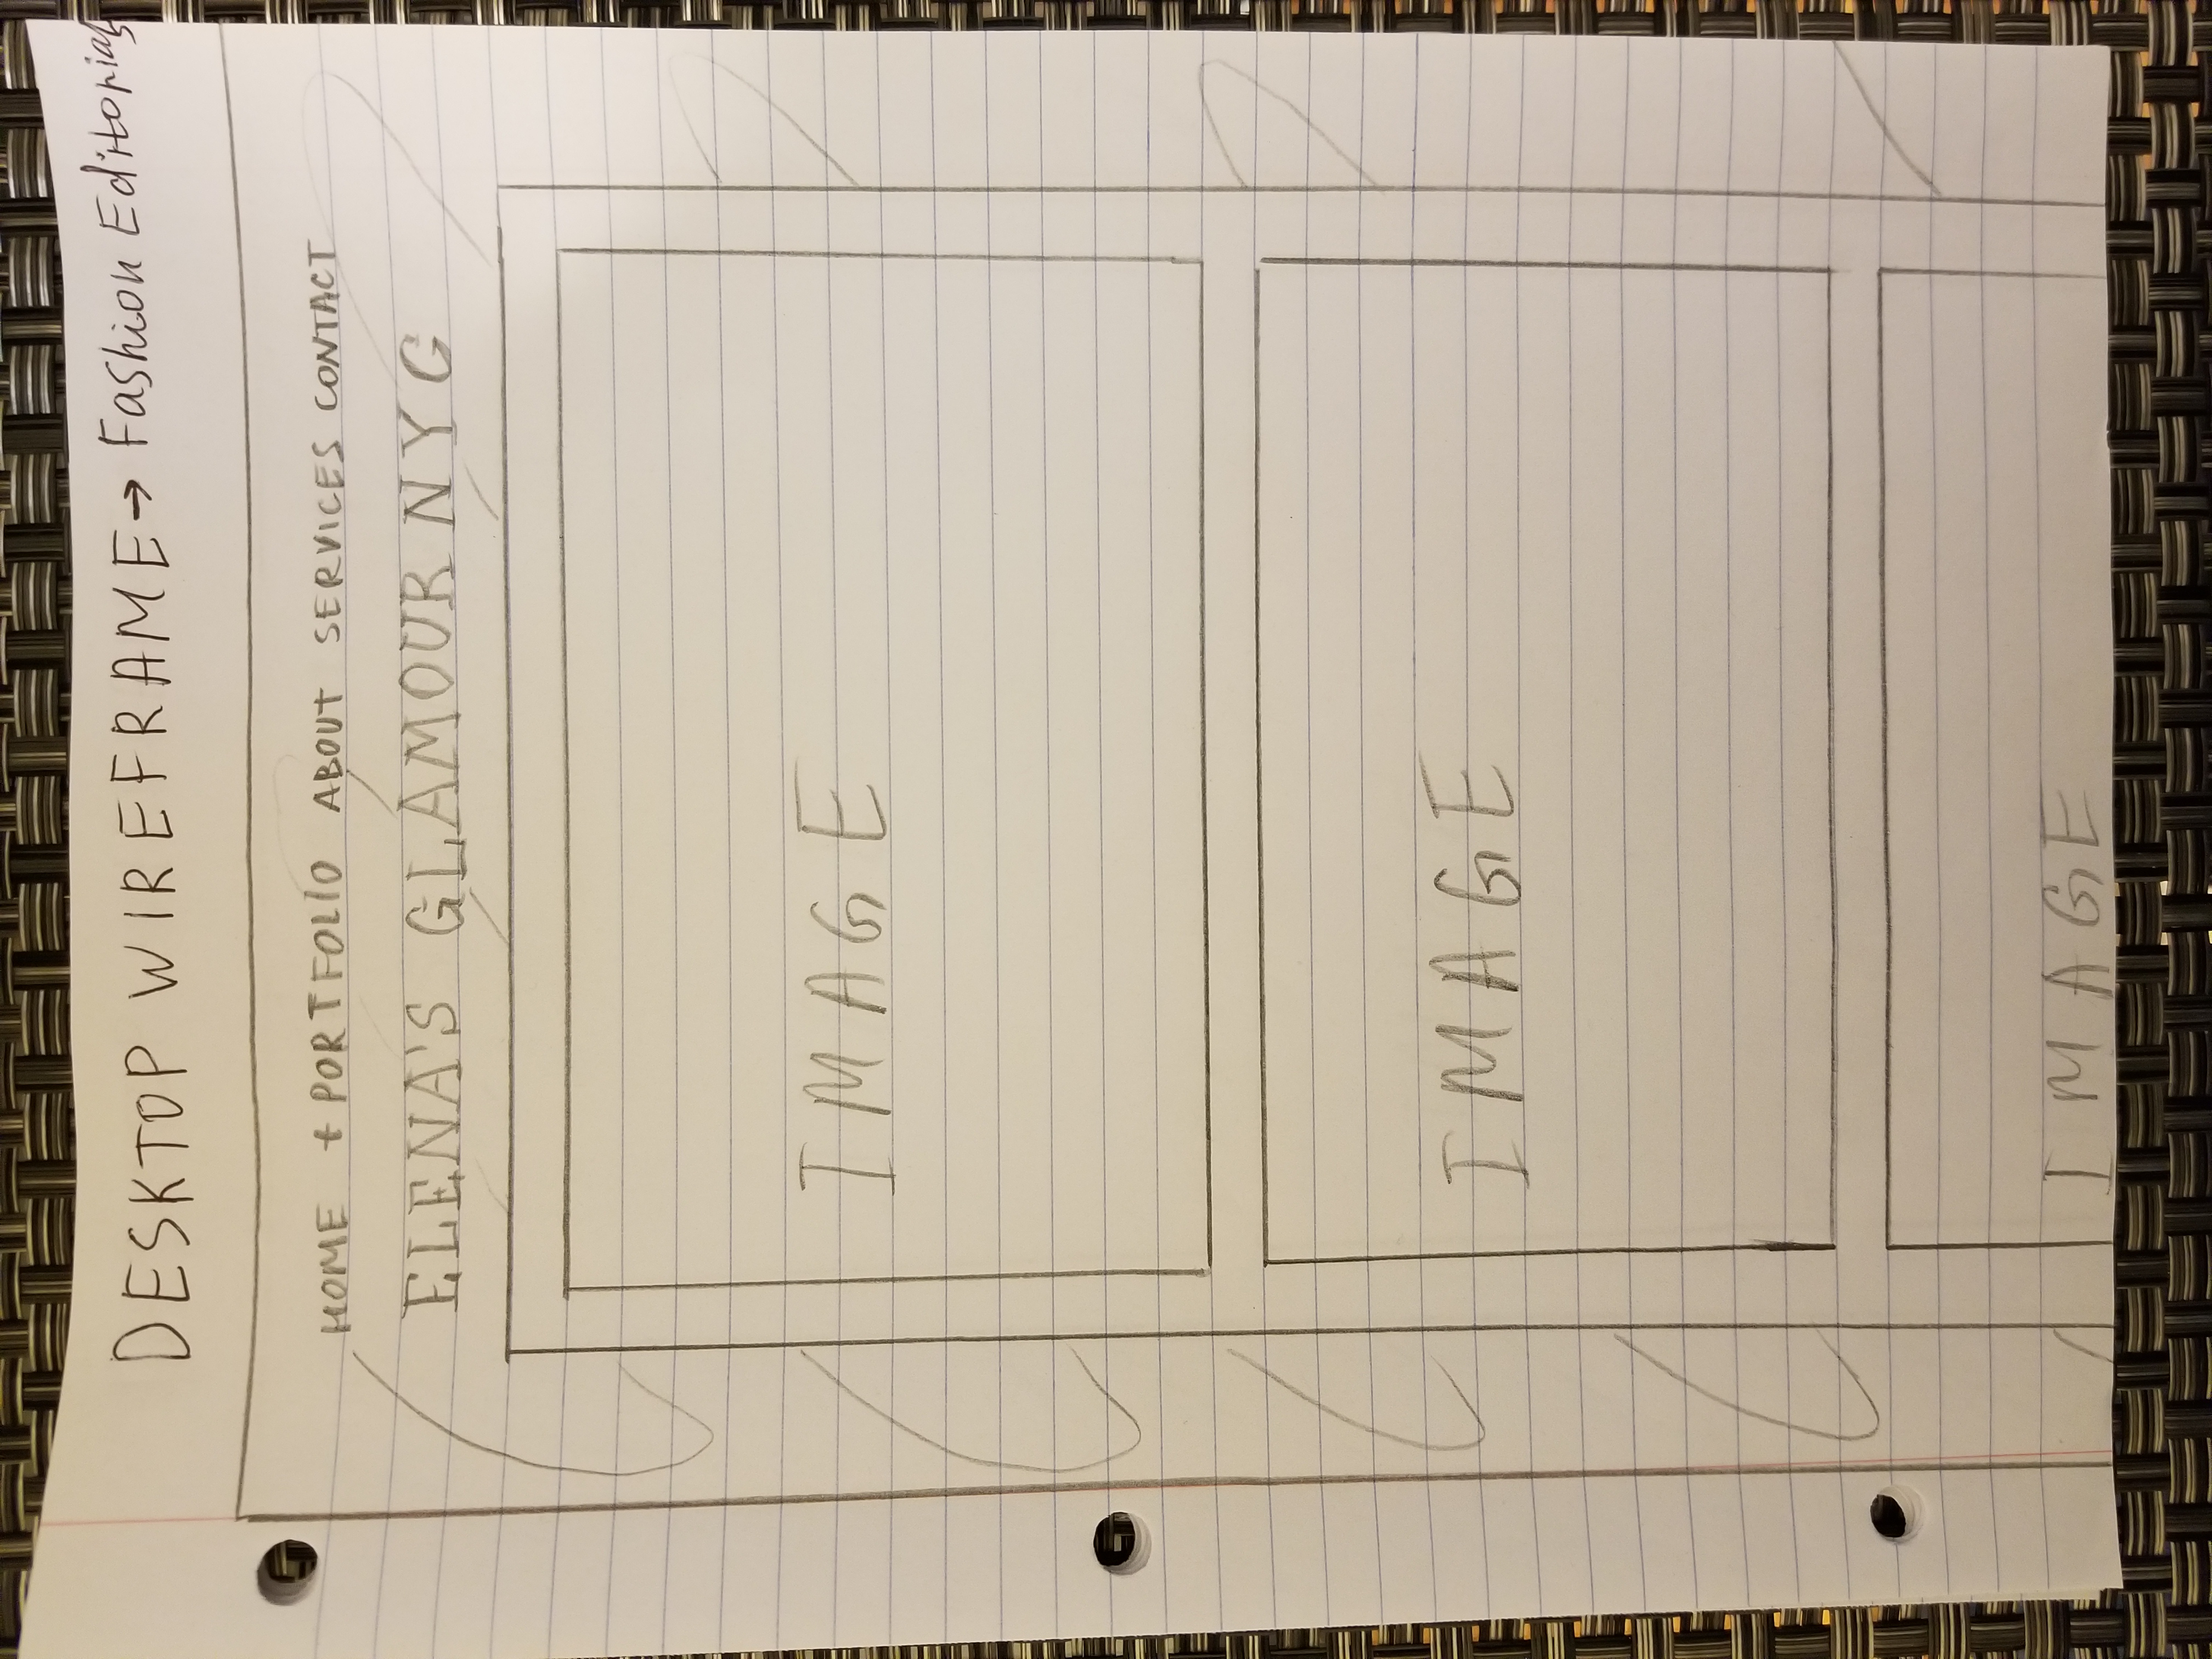 DESKTOP WIREFRAME → Fashion Editorials
HOME + PORTFOLIO ABOUT SERVICES CONTACT
ELENA'S GLAMOUR NYC
IMAGE
IMAGE
IMAGE